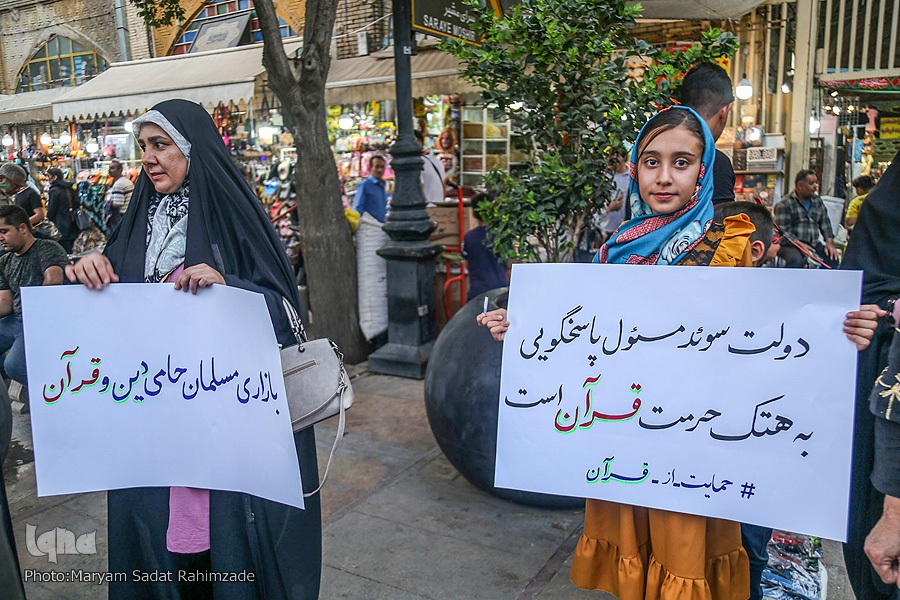 SARAYE MOSHIR
بازاری مسلمان حامی دین و قرآن
دولت سوئد مسئول پاسخگویی
به هتک حرمت قرآن است
# حمایت_از_قرآن
iqna
Photo:Maryam Sadat Rahimzade